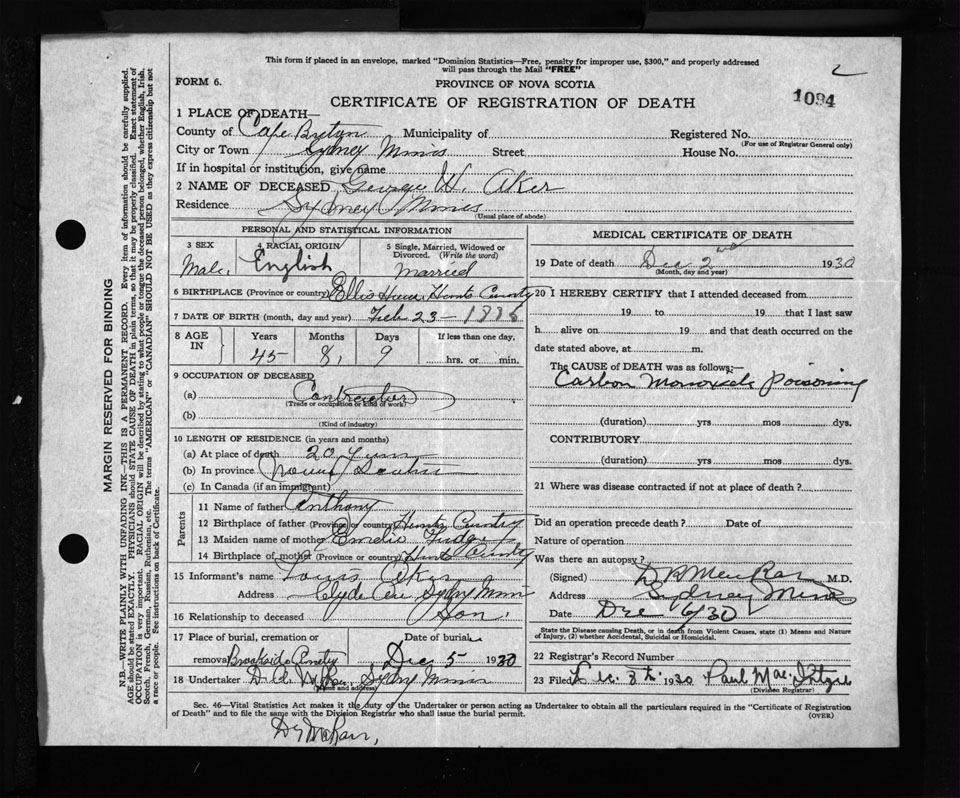 This form if placed in an envelope, marked "Dominion Statistics—Free, penalty for improper use, $300," and properly addressed
will pass through the Mail "FREE"
2
FORM 6.
PROVINCE OF NOVA SCOTIA
1094
CERTIFICATE OF REGISTRATION OF DEATH
1 PLACE OF DEATH—
County of Cape Breton Municipality of Registered No.
(For use of Registrar General only)
City or Town Sydney Mines Street House No.
If in hospital or institution, give name
2 NAME OF DECEASED George W. Aker
Residence Sydney Mines
(Usual place of abode)
PERSONAL AND STATISTICAL INFORMATION
3 SEX 4 RACIAL ORIGIN 5 Single, Married, Widowed or Divorced. (Write the word)
Male. English Married
6 BIRTHPLACE (Province or country) Hants County
7 DATE OF BIRTH (month, day and year) Feb 23 - 1886
8 AGE IN Years Months Days If less than one day,
45 8 9 hrs. or min.
9 OCCUPATION OF DECEASED
(a) Contractor
(Trade or occupation or kind of work)
(b)
(Kind of industry)
10 LENGTH OF RESIDENCE (in years and months)
(a) At place of death 20 Years
(b) In province Nova Scotia
(c) In Canada (if an immigrant)
Parents
11 Name of father Anthony
12 Birthplace of father (Province or country) Hants County
13 Maiden name of mother Emelie
14 Birthplace of mother (Province or country) Hants County
15 Informant's name Louis Aker
Address Clyde Ave Sydney Mines
16 Relationship to deceased Son.
17 Place of burial, cremation or removal Date of burial
Brookside Dec 5 1930
18 Undertaker Sydney Mines
(Name and address)
MEDICAL CERTIFICATE OF DEATH
19 Date of death Dec 2nd 1930
(Month, day and year)
20 I HEREBY CERTIFY that I attended deceased from
19 to 19 that I last saw
h alive on 19 and that death occurred on the
date stated above, at m.
The CAUSE of DEATH was as follows:—
Carbon Monoxide Poisoning
(duration) yrs mos dys.
CONTRIBUTORY
(duration) yrs mos dys.
21 Where was disease contracted if not at place of death?
Did an operation precede death? Date of
Nature of operation
Was there an autopsy?
(Signed) M.D.
Address Sydney Mines
Date Dec 6/30
State the Disease causing Death, or in death from Violent Causes, state (1) Means and Nature
of Injury, (2) whether Accidental, Suicidal or Homicidal.
22 Registrar's Record Number
23 Filed Dec. 8th. 1930 Paul
(Division Registrar)
Sec. 46—Vital Statistics Act makes it the duty of the Undertaker or person acting as Undertaker to obtain all the particulars required in the "Certificate of Registration
of Death" and to file the same with the Division Registrar who shall issue the burial permit.
(OVER)
MARGIN RESERVED FOR BINDING
N.B.—WRITE PLAINLY WITH UNFADING INK—THIS IS A PERMANENT RECORD. Every item of information should be carefully supplied.
AGE should be stated EXACTLY. PHYSICIANS should STATE CAUSE OF DEATH in plain terms, so that it may be properly classified. Exact statement of
OCCUPATION is very important. RACIAL ORIGIN will be described by stating to what people or tongue the deceased person belonged, whether English, Irish,
Scotch, French, German, Russian, Ruthenian, etc. The terms "AMERICAN" or "CANADIAN" SHOULD NOT BE USED as they express citizenship but not
a race or people. See instructions on back of Certificate.